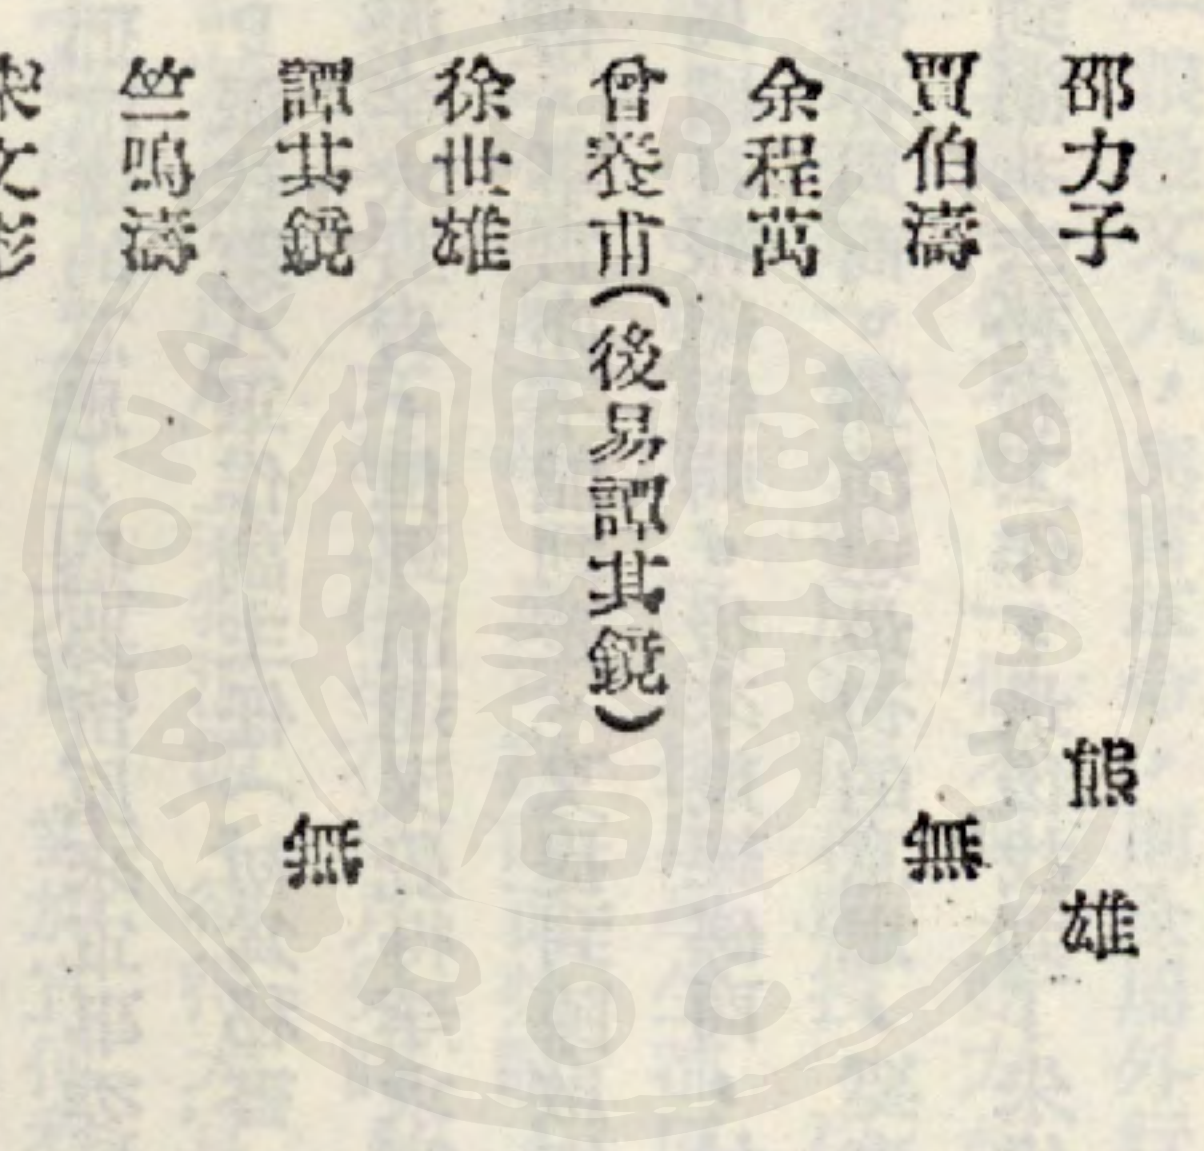 邵力子 熊雄
賈伯濤 無
余程萬
曾養甫(後易譚其鏡)
徐世雄
譚其鏡 無
竺鳴濤
宋文彬
NATIONAL CENTRAL LIBRARY
國家圖書
ROC